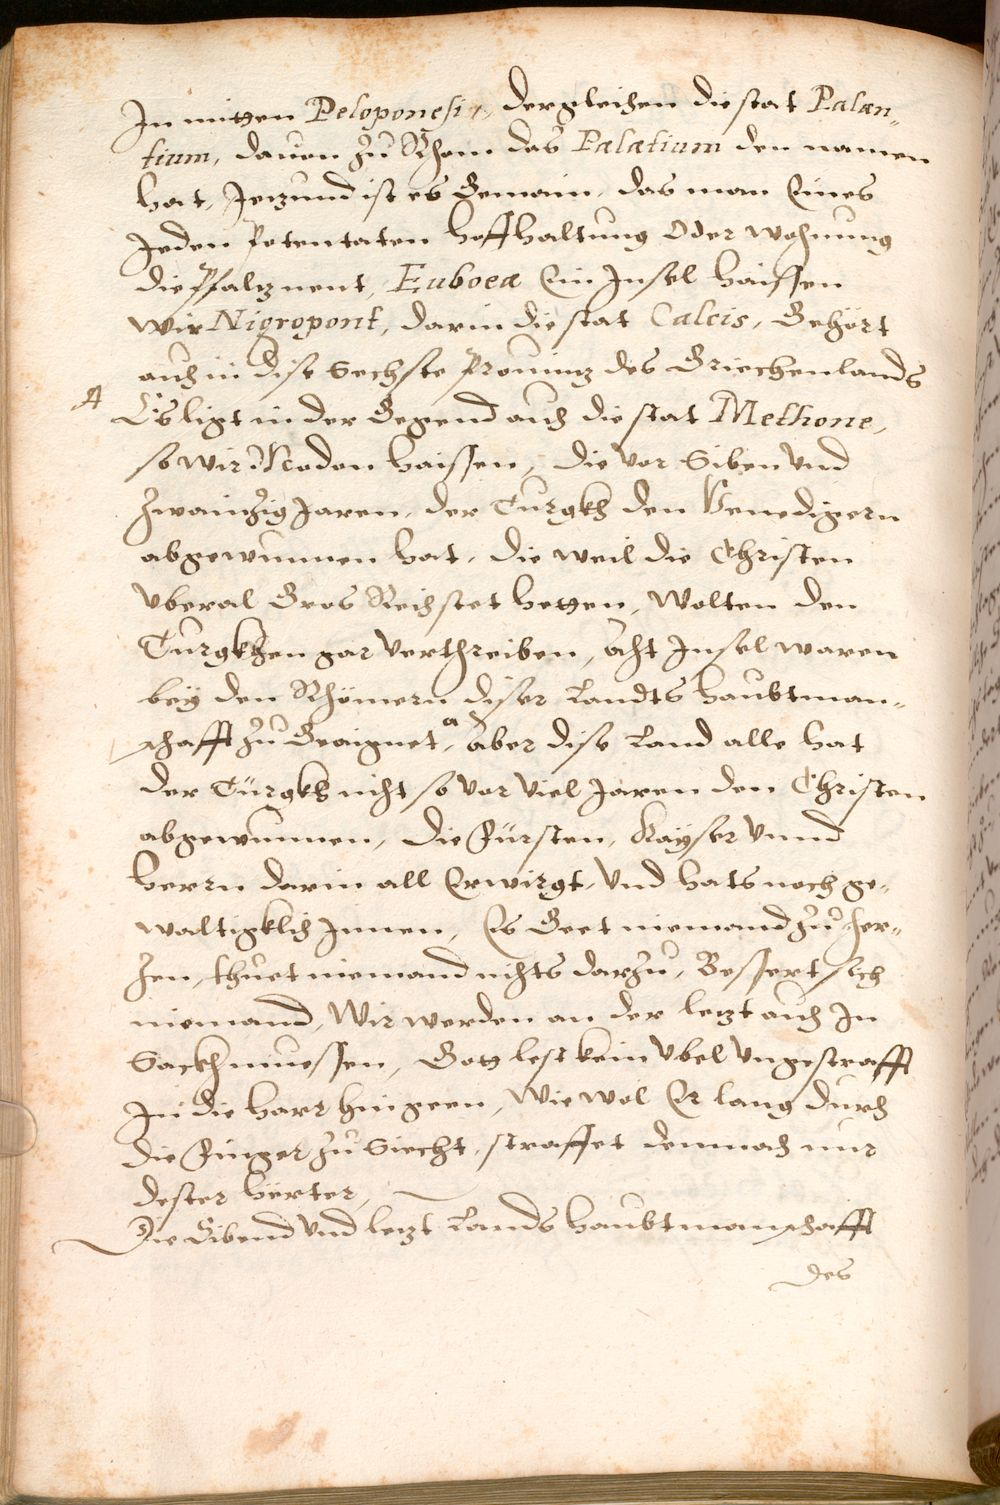 In mitten Peloponesi, dergleichen die stat Palan-
tium, dauon zu Rhom das Palatium den namen
hat, Jetzund ist es Gemain, das man Eines
Jeden Potentaten hoffhaltung Oder wohnung
die Pfaltz nent, Euboea Ein Insel haissen
wir Nigropont, darin die stat Calcis, Gehört
auch in dise Sechste Prouintz des Griechenlands
A Es ligt in der Gegend auch die stat Methone,
so wir Modon haissen, die vor Siben vnd
zwaintzig Jaren, der Turgkh den Venedigern
abgewunnen hat, die weil die Christen
vberal Gros Reichstet hetten, Wolten den
Turgkhen gar verthreiben, acht Insel waren
bey den Rhömern diser Landts haubtman-
schafft zu Geaignet, a aber dise Land alle hat
der Türgkh nicht so vor viel Jaren den Christen
abgewunnen, die Fürsten, Kayser vnnd
herrn darin all Erwirgt, vnd hats noch ge-
waltigklich Innen, Es Geet niemand zu Her-
zen, thuet niemand nichts darzu, Bessert sich
niemand, Wir werden an der letzt auch In
Sackh muessen, Gott lest kein vbel vngestrafft
In die harr hingeen, Wie wol Er lang durch
die Finger zu Siecht, straffet dennoch nur
dester herter,
Die Sibend vnd letzt Lands haubtmanschafft
des